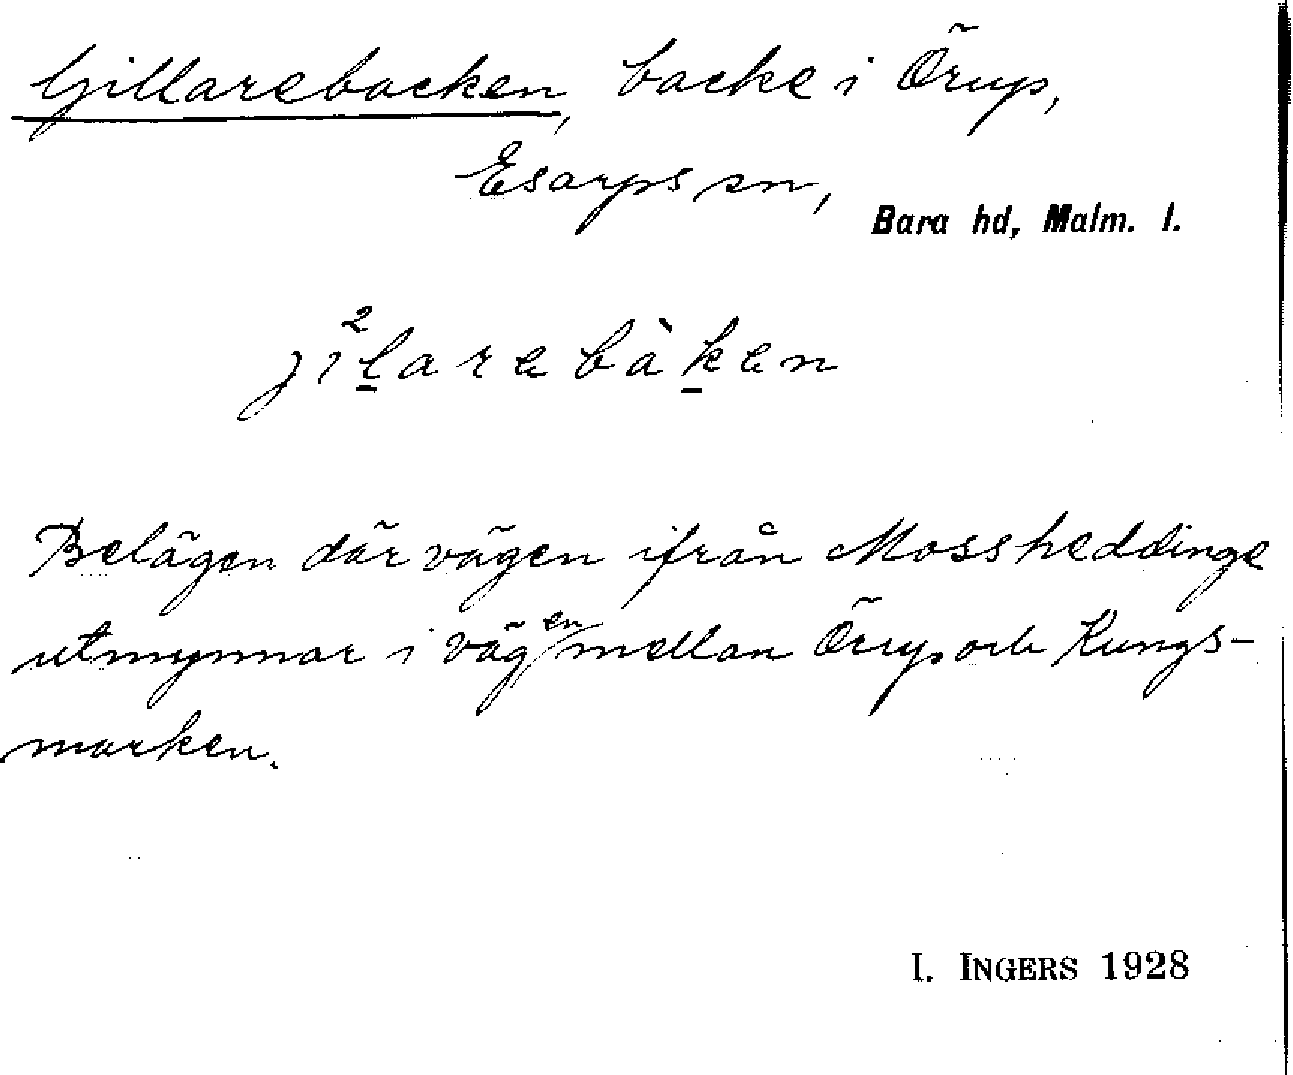 Gillarebacken, backe i Örup,
Esarps sn,
Bara hd, Malm. l.
ji²larebàken
Belägen där vägen ifrån Mossheddinge
utmynnar i vägen mellan Örup och Kungs-
marken.
I. INGERS 1928